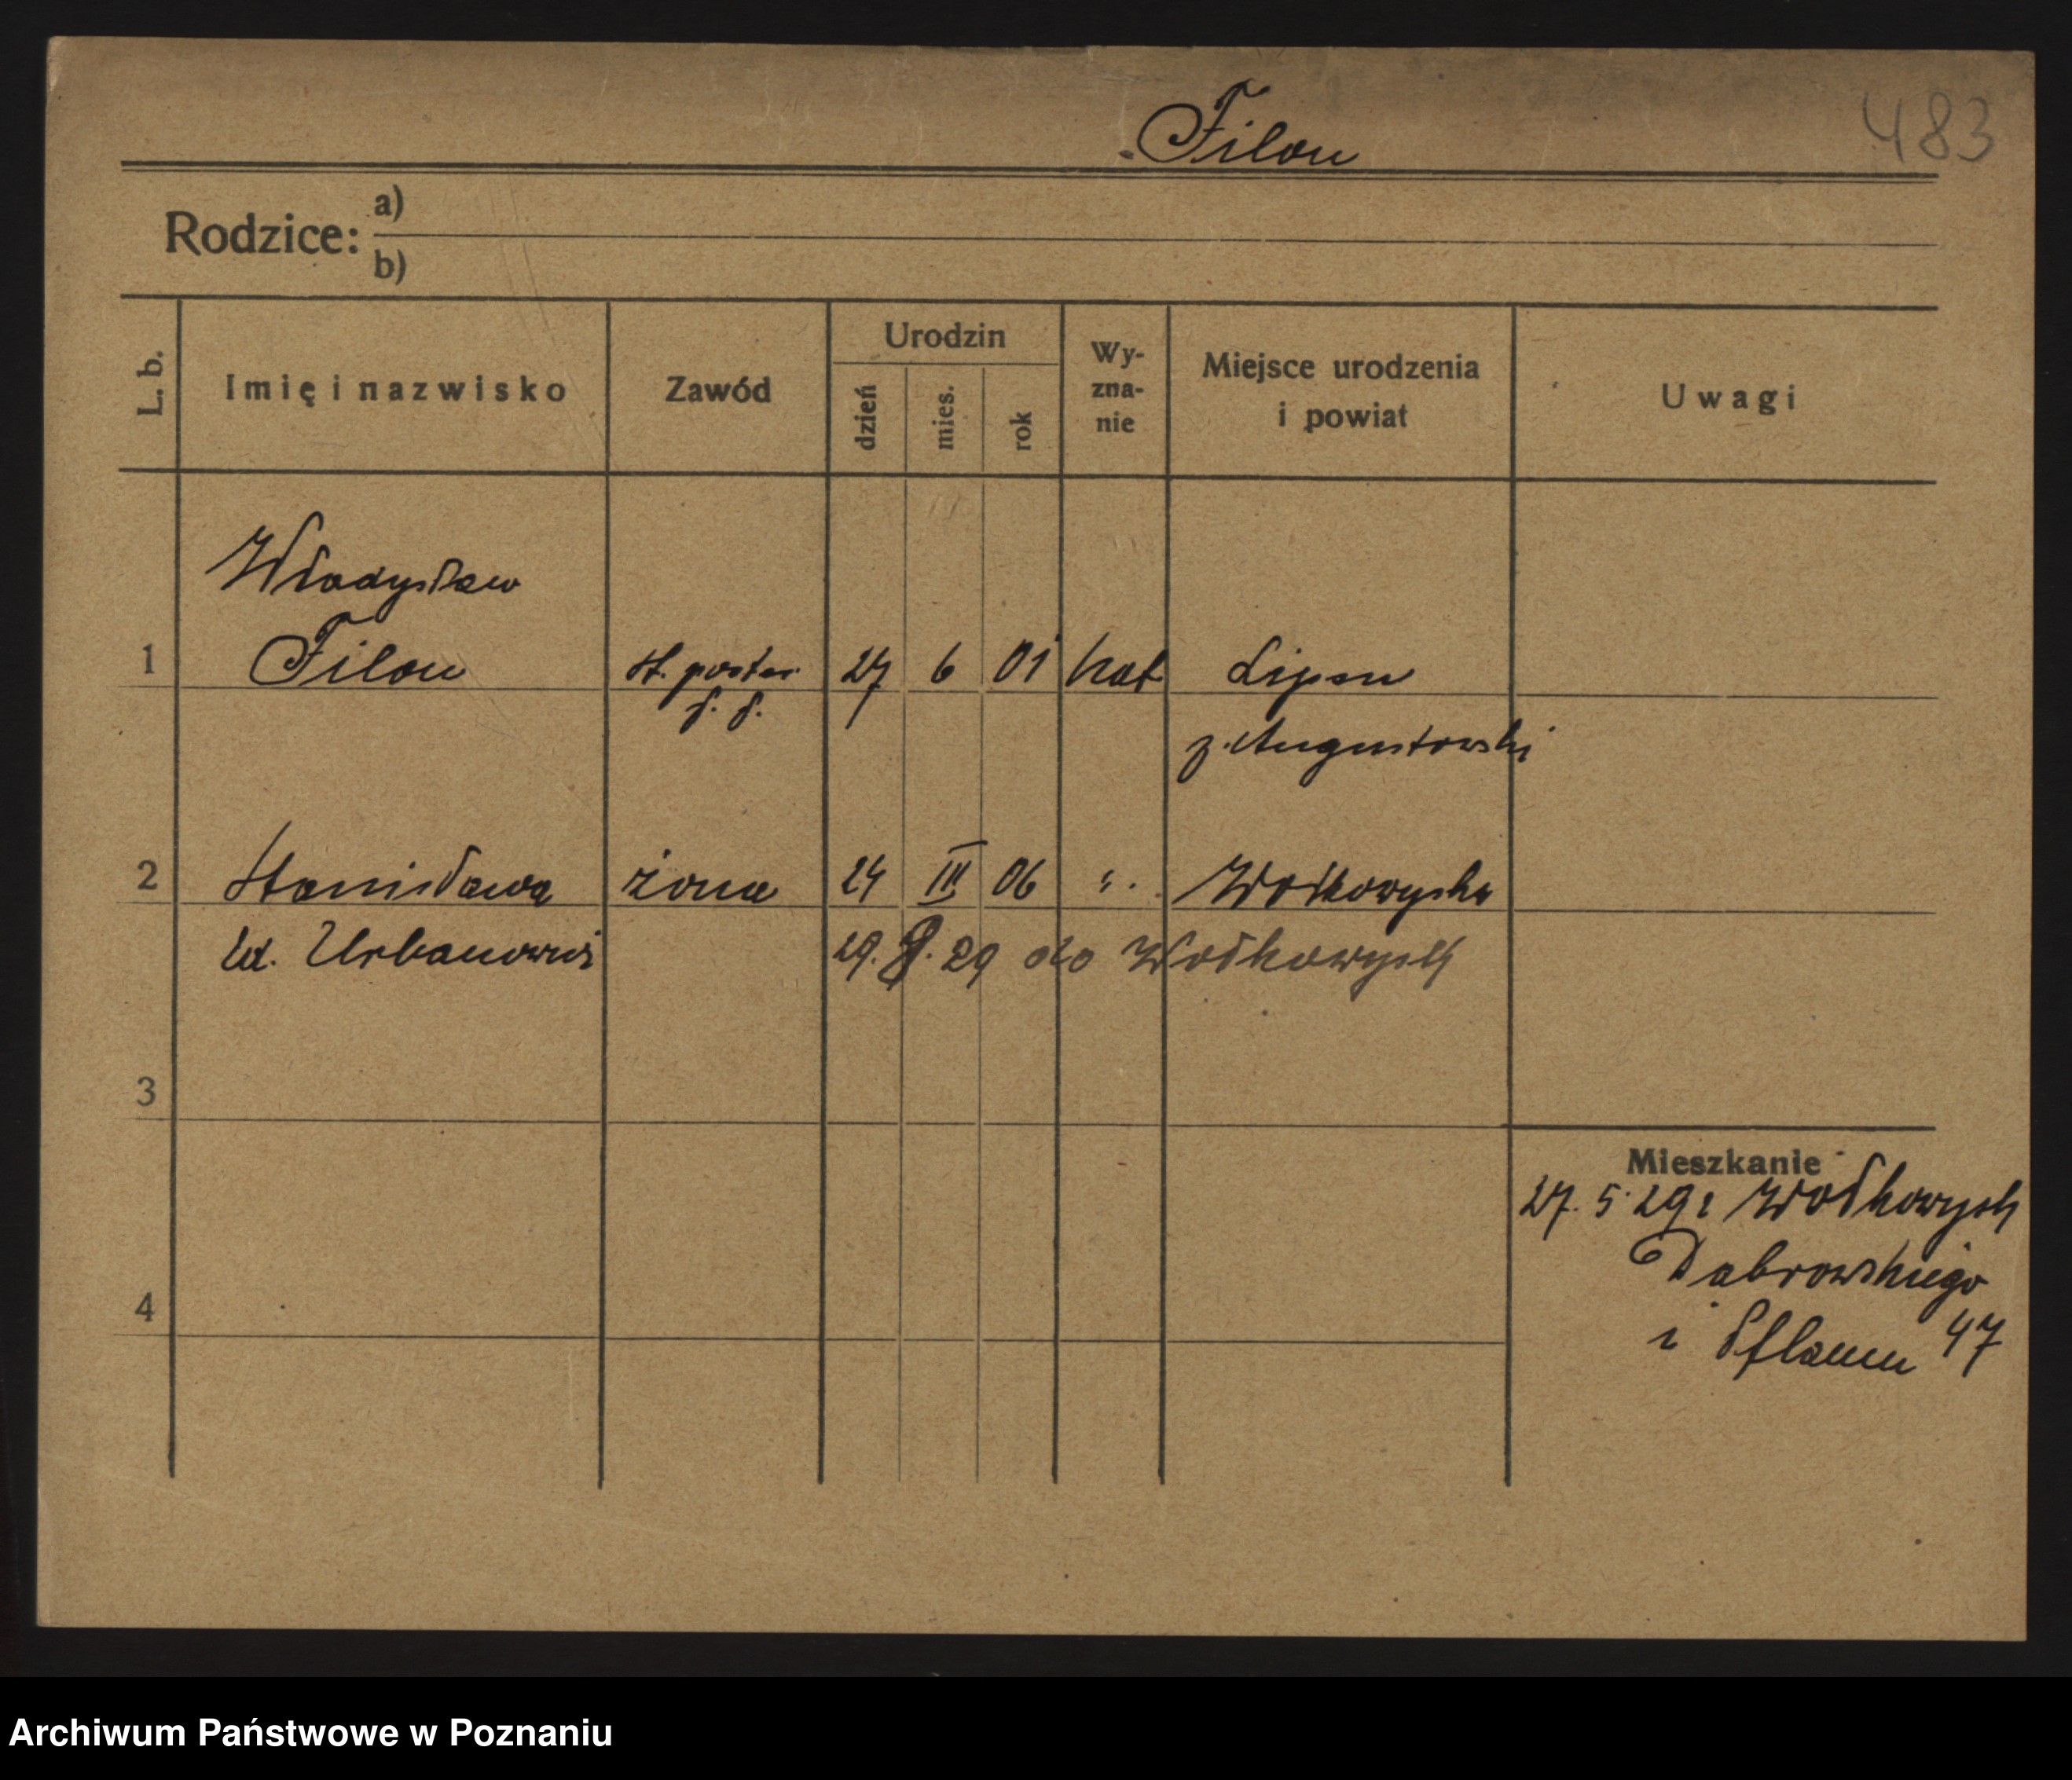 Filon
483
Rodzice:
a)
b)
L. b.
Imię i nazwisko
Zawód
Urodzin
dzień
mies.
rok
Wy-
zna-
nie
Miejsce urodzenia
i powiat
Uwagi
Władysław
1 Filon st. poster. 27 6 01 kat Lipsu
p. Augustowski
2 Stanisława żona 24 III 06 Wołkowysku
Ur. Urbanowicz 29. 8. 29 do Wołkowysk
3
4
Mieszkanie
27. 5. 29 z Wołkowysk
Dąbrowskiego
i Pflaum 47
Archiwum Państwowe w Poznaniu